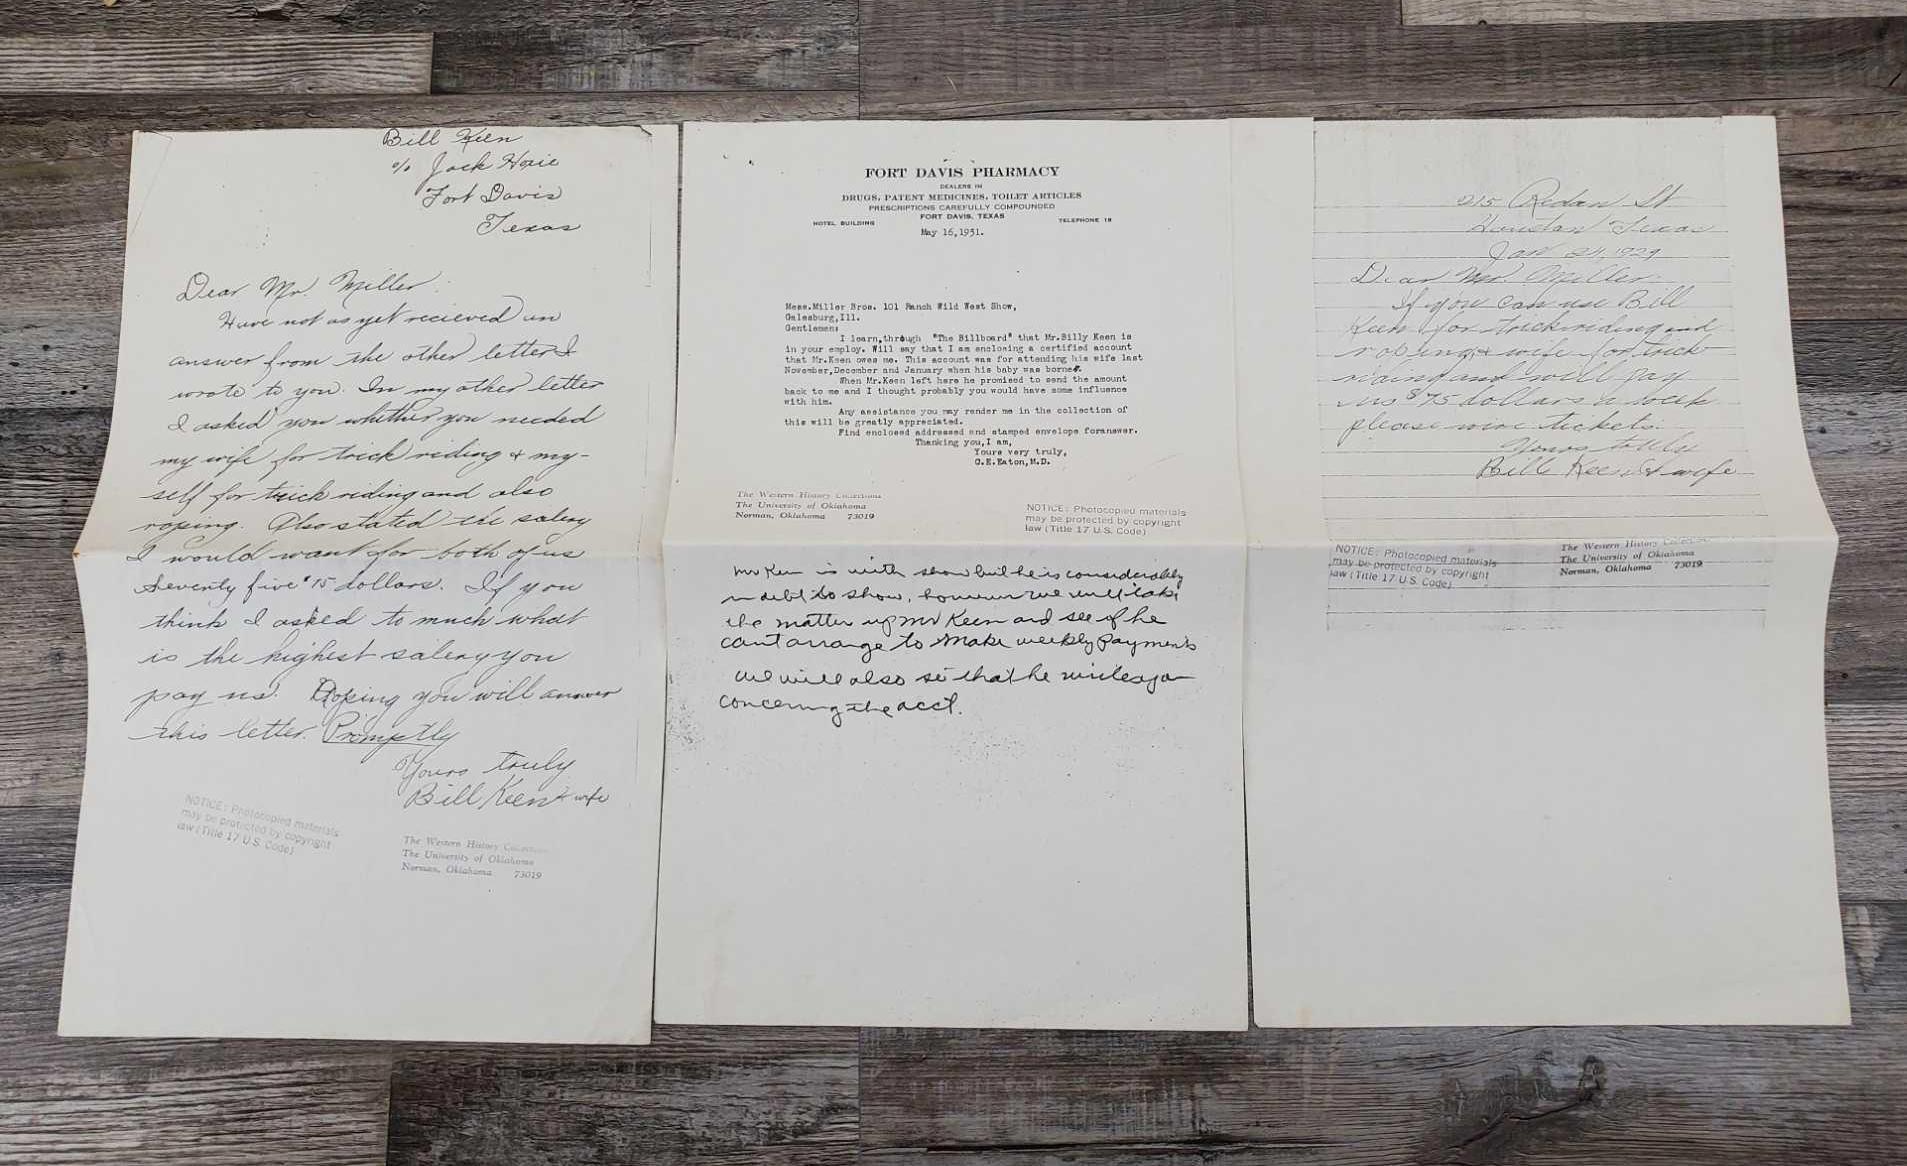 Bill Keen
c/o Jack Hoxie
Fort Davis
Texas
Dear Mr. Miller:
Have not as yet recieved an
answer from the other letter I
wrote to you. In my other letter
I asked you whether you needed
my wife for trick riding & my-
self for trick riding and also
roping. Also stated the salery
I would want for both of us
Seventy five $75 dollars. If you
think I asked to much what
is the highest salery you
pay us. Hoping you will answer
this letter. Promptly
Yours truly
Bill Keen & wife
NOTICE: Photocopied materials
may be protected by copyright
law (Title 17 U.S. Code)
The Western History Collections
The University of Oklahoma
Norman, Oklahoma 73019
FORT DAVIS PHARMACY
DEALERS IN
DRUGS, PATENT MEDICINES, TOILET ARTICLES
PRESCRIPTIONS CAREFULLY COMPOUNDED
FORT DAVIS, TEXAS
HOTEL BUILDING TELEPHONE 18
May 16,1931.
Mess.Miller Bros. 101 Ranch Wild West Show,
Galesburg,Ill.
Gentlemen:
I learn,through "The Billboard" that Mr.Billy Keen is
in your employ. Will say that I am enclosing a certified account
that Mr.Keen owes me. This account was for attending his wife last
November,December and January when his baby was borne.
When Mr.Keen left here he promised to send the amount
back to me and I thought probably you would have some influence
with him.
Any assistance you may render me in the collection of
this will be greatly appreciated.
Find enclosed addressed and stamped envelope foranswer.
Thanking you,I am,
Yours very truly,
C.E.Eaton,M.D.
The Western History Collections
The University of Oklahoma
Norman, Oklahoma 73019
NOTICE: Photocopied materials
may be protected by copyright
law (Title 17 U.S. Code)
Mr Keen is with show but he is considerably
in debt to show, however we will take
the matter up Mr Keen and see if he
cant arrange to make weekly payments
we will also se that he writes you
concerning the acct.
215 Redan St
Houston Texas
Jan 24, 1929
Dear Mr. Miller:
If you can use Bill
Keen for trick riding and
roping & wife for trick
riding and will pay
us $75 dollars a week
please wire tickets.
Yours truly
Bill Keen & wife
NOTICE: Photocopied materials
may be protected by copyright
law (Title 17 U.S. Code)
The Western History Collections
The University of Oklahoma
Norman, Oklahoma 73019